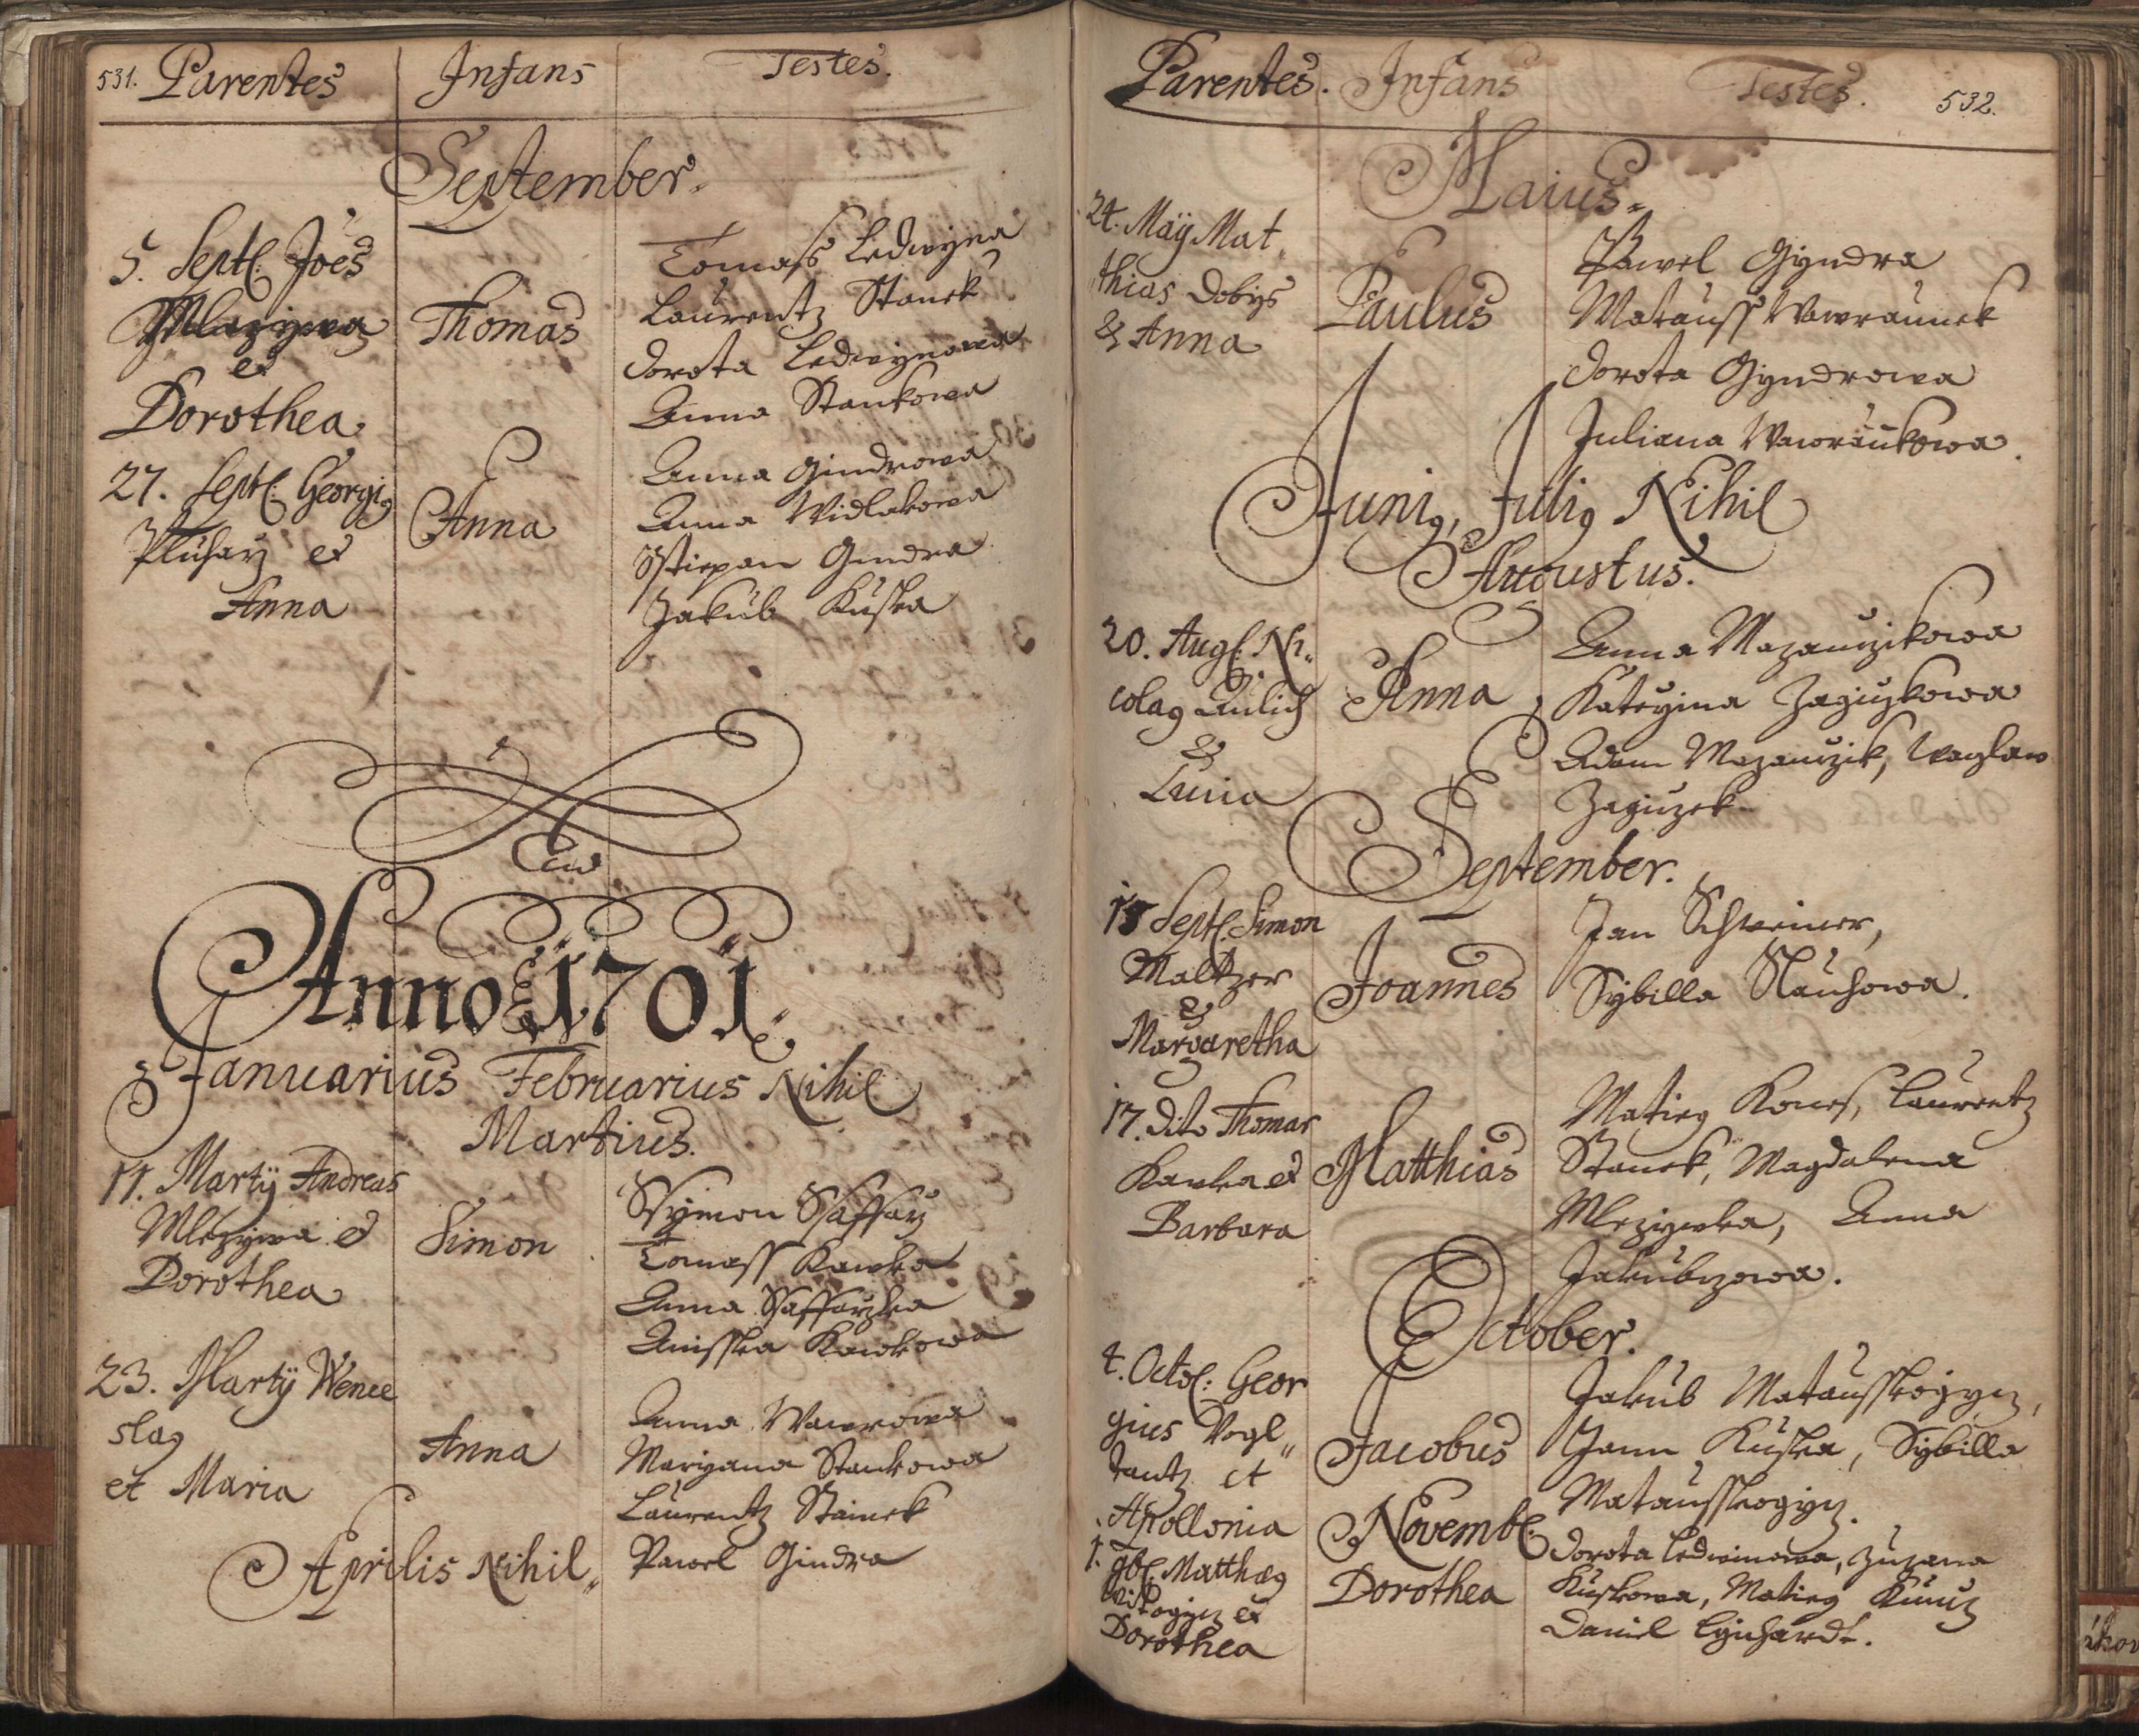 531. Parentes Infans Testes.
September.
5. Septl. Joes
Mlezywa
et
Dorothea
Thomas
Tomass Ledwyna
Laurentz Stanek
Dorota Ledwynowa
Anna Stankowa
27. Septl. Georgi9
Pluharz et
Anna
Anna
Anna Gindrowa
Anna Widlakowa
Sstiepan Gindra
Jakub Kuska
Anno 1701
Januarius Februarius Nihil
Martius.
11. Martij Andreas
Mlezywa et
Dorothea
Simon
Ssymon Ssaffarz
Tomass Kawka
Anna Ssaffarzka
Anisska Kawkowa
23. Martij Wence
sla9
et Maria
Anna
Anna Wawrowa
Maryana Stankowa
Laurentz Stanek
Pawel Gindra
Aprilis Nihil
Parentes. Infans Testes. 532.
Maius.
24. Maÿ Mat
thias Dobys
& Anna
Paulus
Pawel Gyndra
Matauss Wawraunek
Dorota Gyndrowa
Juliana Wawraukowa.
Juni9, Juli9 Nihil
Augustus.
20. Augl. Ni
cola9 Aulich
&
Lucia
Anna
Anna Mazaurzikowa
Kateryina Zagiczkowa
Adam Mazaurzik, Waczlaw
Zagiczek
September.
15 Septl. Simon
Maltzer
&
Margaretha
Joannes
Jan Schreiner,
Sybilla Slauhowa.
17. Dito Thomas
Kawka et
Barbara
Matthias
Matieg Kones, Laurentz
Stanek, Magdalena
Mlezywka, Anna
Jakubczowa.
October.
4. Octol: Geor
gius Vogl
tantz et
Apollonia
Jacobus
Jakub Matausskogycz,
Jann Kuska, Sybilla
Matausskogycz.
Novembl.
1. 9bl. Matthae9
Witogycz et
Dorothea
Dorothea
Dorota Ledwinowa, Zuzana
Kuskowa, Matieg Kuncz
Daniel Eginhardt.